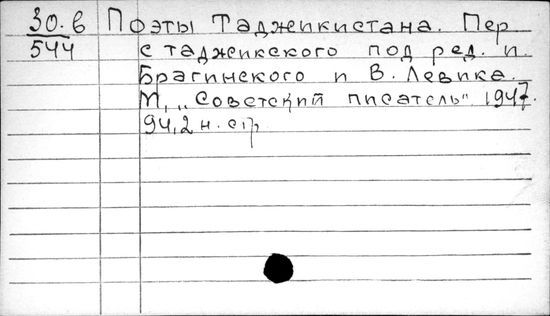 30.в Поэты Таджикистана. Пер
544 с таджикского под ред. и.
Брагинского и В. Левика.
М, „Советский писатель" 1947.
94,2 н. стр.